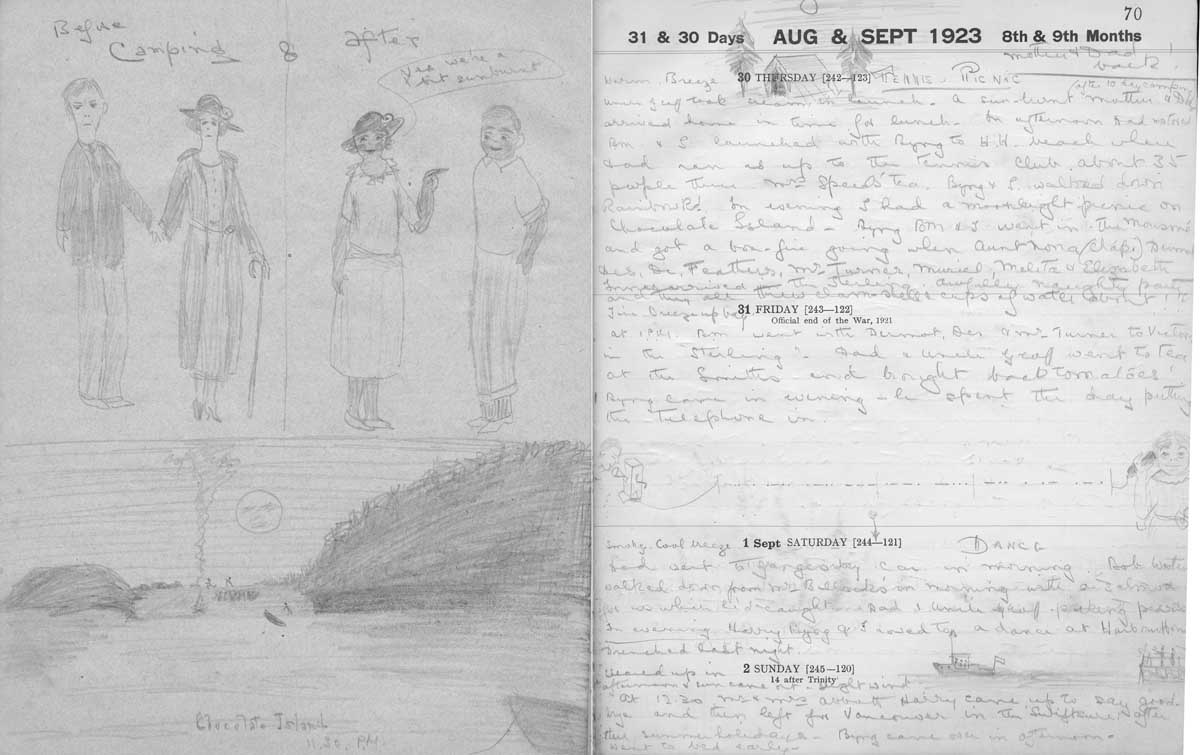 Before & after
Camping
Yes we're a
bit sunburnt
Chocolate Island
11.30. P.M.
70
31 & 30 Days AUG & SEPT 1923 8th & 9th Months
Mother & Dad
back!
(after 10 day camping
Warm. Breeze 30 THURSDAY [242—123] TENNIS - PICNIC
swam in launch. A sun-burnt mother & Dad
arrived home in time for lunch. In afternoon Dad
Bm. & I launched with Byng to H.H. beach where
Dad ran us up to the Tennis Club. about 35
people there Mrs Speed's Tea. Byng & I walked down
Rainbow Rd. In evening I had a moonlight picnic on
Chocolate Island - Byng BM & I went in the
and got a bon-fire going when Aunt Nona (Chap.) Dermot
Des, Feathers, Mrs Turner, Muriel, Melita & Elizabeth
arrived in the Sterling. awfully naughty party
and they all threw clam shells & cups of water about
Fine breeze up bay 31 FRIDAY [243—122]
Official end of the War, 1921
at Bm. went with Dermot, Des & Mrs Turner to
in the Sterling. Dad & Uncle Geof went to tea
at the Smiths and bought back tomatoes!
Byng came in evening - he spent the day putting
the telephone in.
Smoky. Cool breeze 1 Sept SATURDAY [244—121] DANCE
Dad went to Ganges by car in morning. Bob
walked down from Mrs in morning with a salmon
for us which he'd caught. Dad & Uncle Geof picking
In evening Harry Byng & I rowed to a dance at Harbour House
drenched last night.
cleared up in 2 SUNDAY [245—120]
afternoon & sun came out. Slight wind 14 after Trinity
At 12.30 Mr & Mrs Abbott & Harry came up to say good-
bye and then left for Vancouver in the Swiftsure after
their summer holidays. Byng came over in afternoon.
Went to bed early.